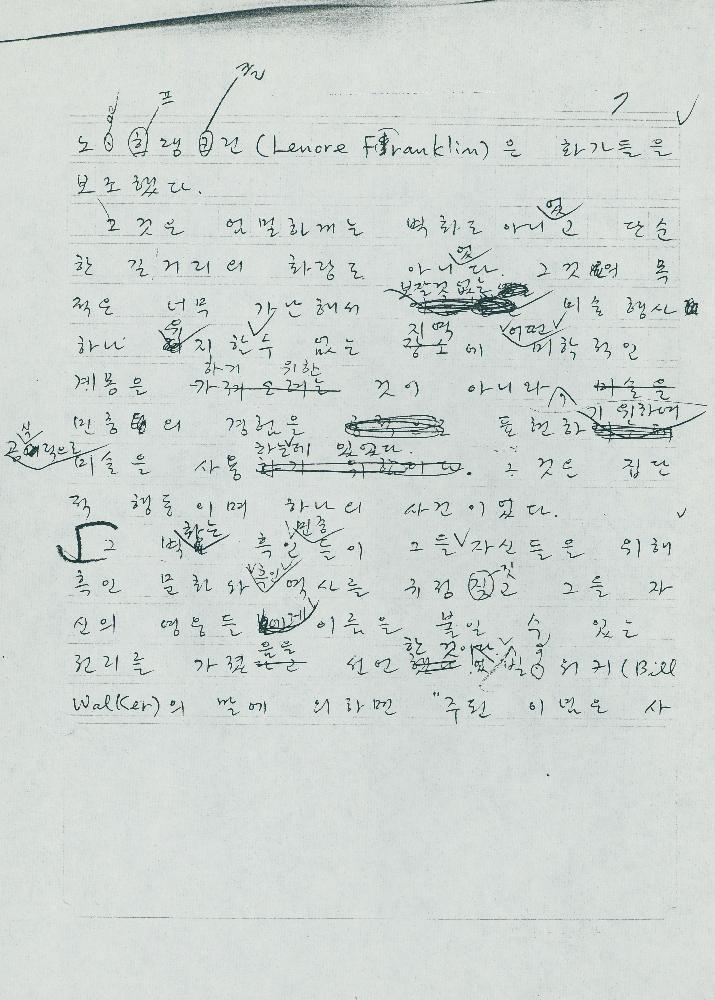 7
노아프랭클린 (Lenore Franklin)은 화가들을
보조했다.
그것은 엄밀하게는 벽화도 아니었고 단순
한 길거리의 화랑도 아니었다. 그것의 목
적은 너무 가난해서 보잘것 없는 미술 행사
하나 유지할 수 없는 지역에 어떤 미학적인
계몽을 하기 위한 것이 아니라
민중의 경험을 표현하기 위하여
공식적으로
미술을 사용하는데 있었다. 그것은 집단
적 행동이며 하나의 사건이었다.
그 벽화는 흑인 민중들이 그들 자신들을 위해
흑인 문화와 흑인 역사를 규정짓고 그들 자
신의 영웅들에게 이름을 붙일 수 있는
권리를 가졌음을 선언한 것이다. 빌 워커(Bill
Walker)의 말에 의하면 "주된 이념은 사